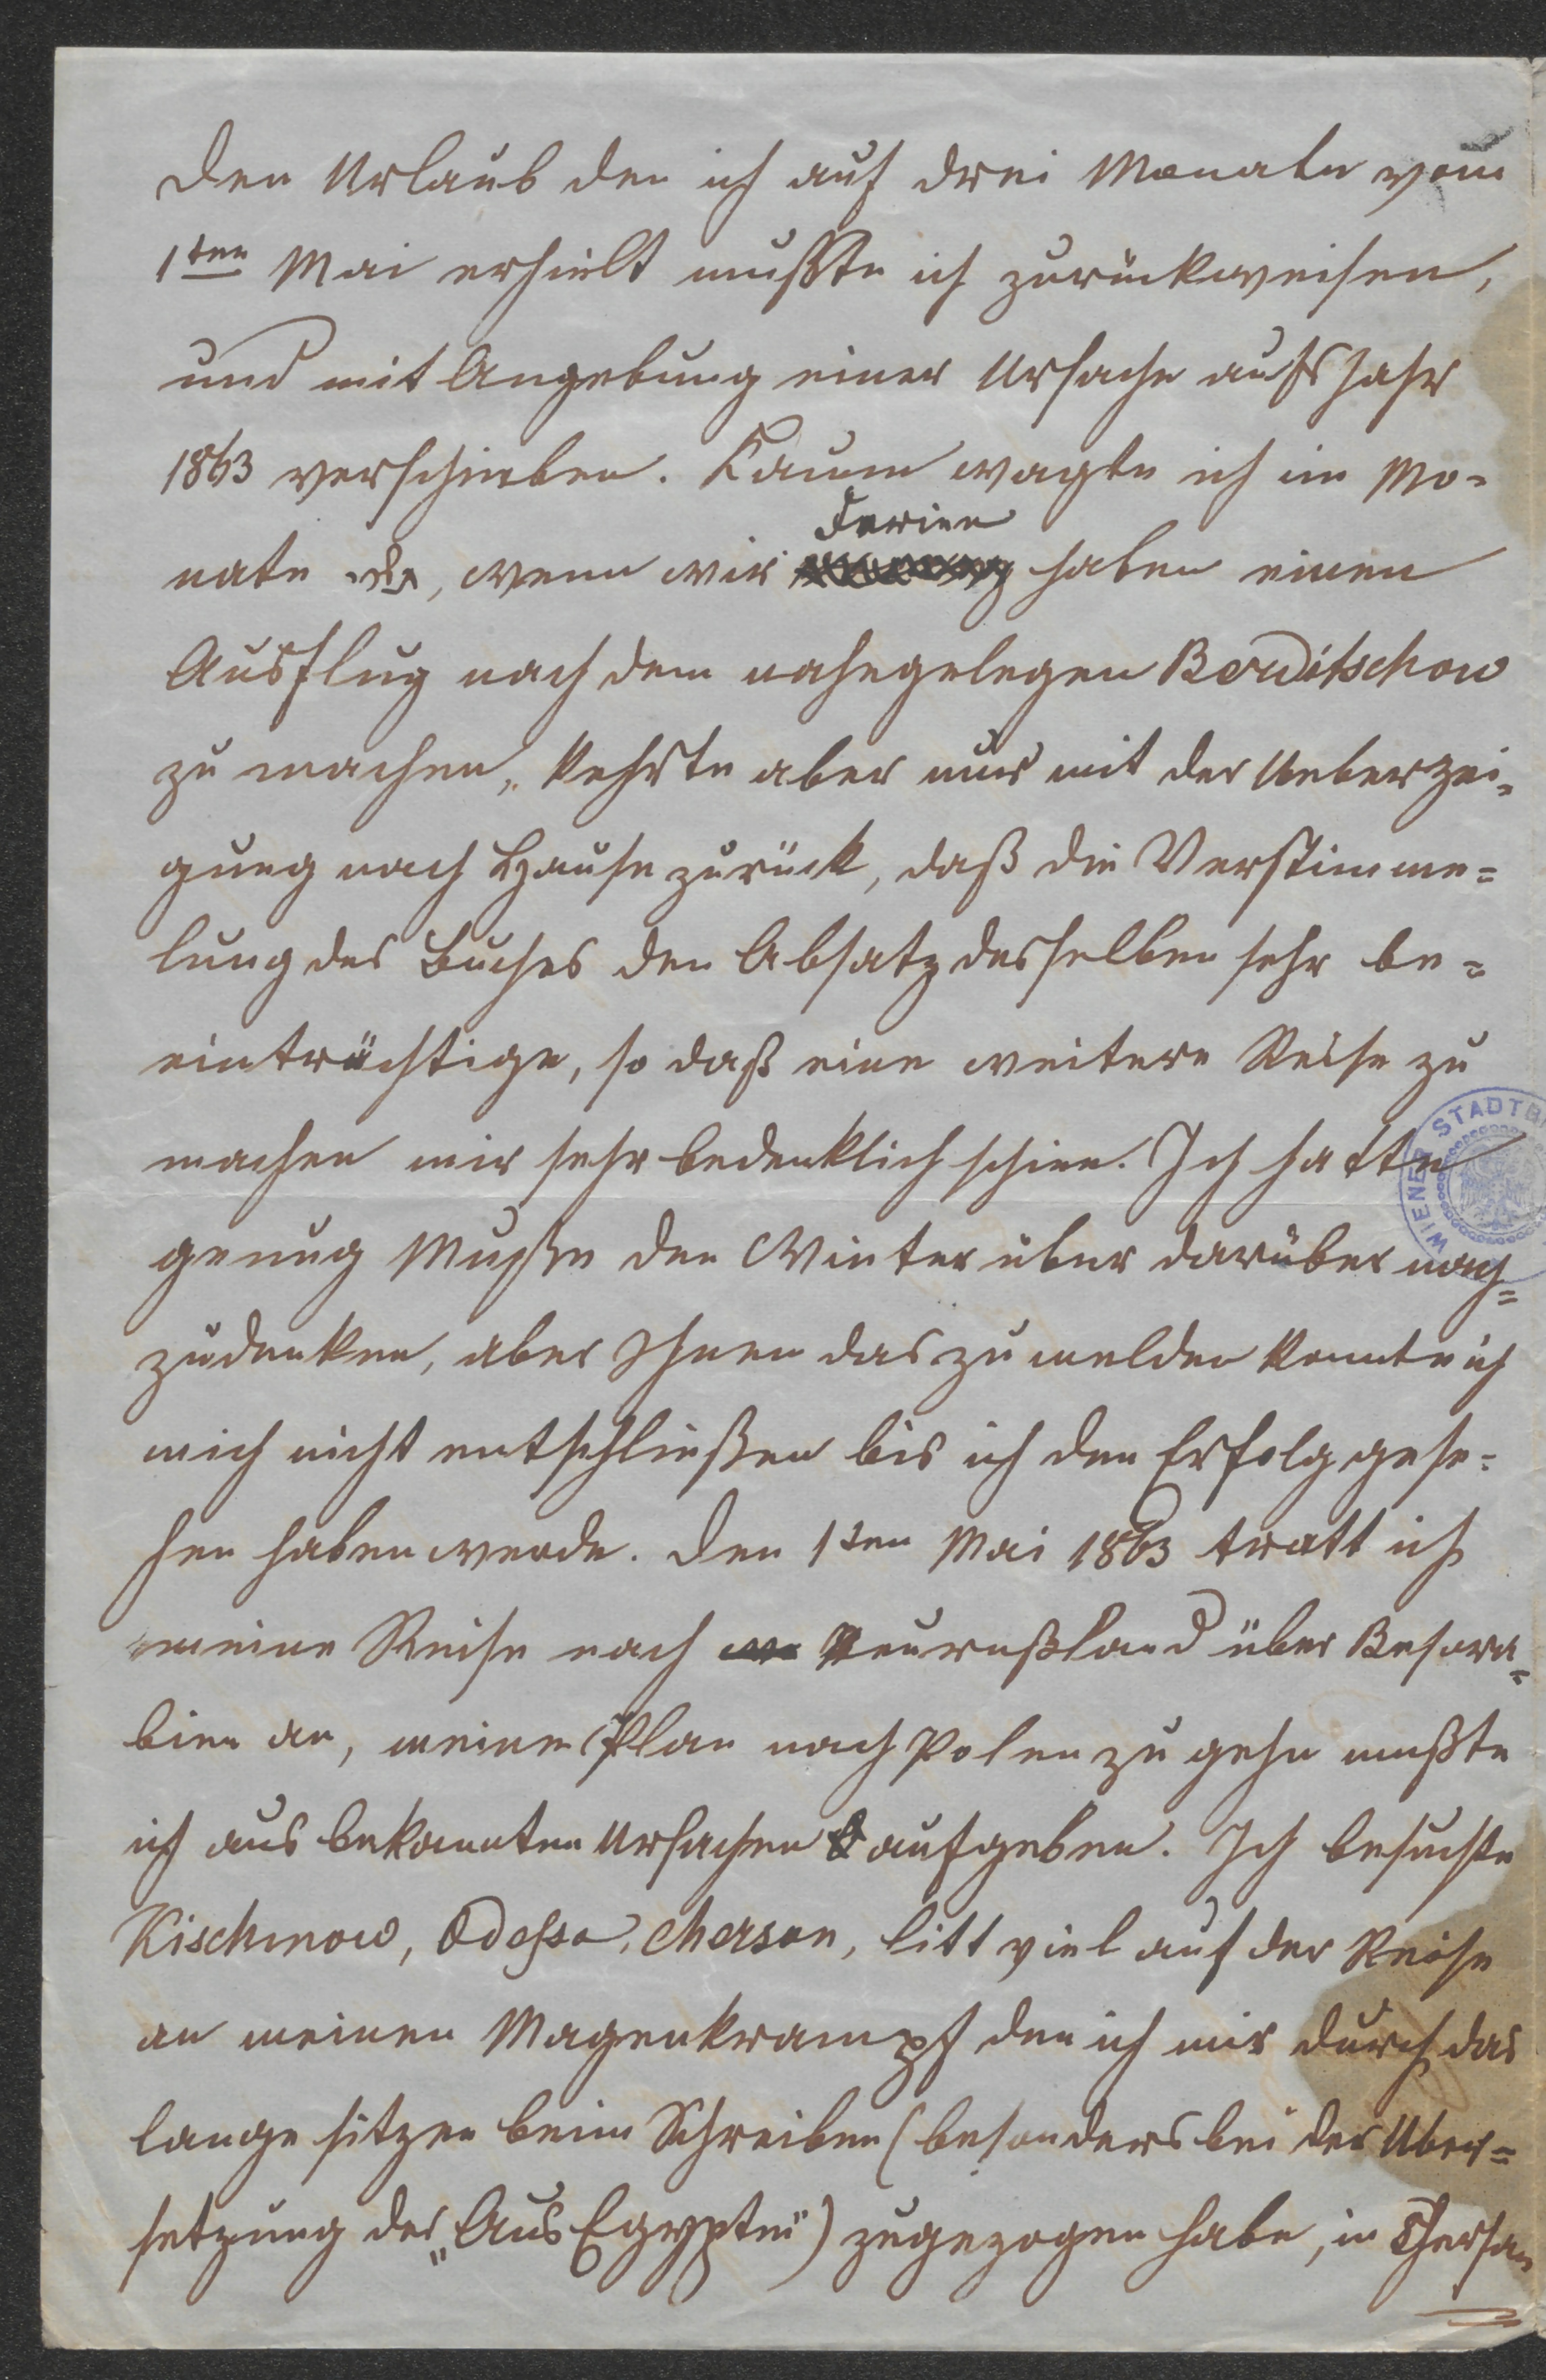 Den Urlaub den ich auf drei Monate vom
1ten Mai erhielt mußte ich zurückweisen,
und mit Angebung einer Ursache aufs Jahr
1863 verschieben. Kaum wagte ich im Mo-
Ferien
nate אב, wenn wir haben einen
Ausflug nach dem nahegelegen Berditschow
zu machen, kehrte aber nur mit der Ueberzei-
gung nach Hause zurück, daß die Verstümme-
lung des Buches den Absatz desselben sehr be-
einträchtige, so daß eine weitere Reise zu
machen mir sehr bedenklich schien. Ich hatte
genug Muße den Winter über darüber nach-
zudenken, aber Ihnen das zu melden konnte ich
mich nicht entschließen bis ich den Erfolg gese-
hen haben werde. Den 1ten Mai 1863 tratt ich
meine Reise nach Neurußland über Besara-
bien an, meinen Plan nach Polen zu gehn mußte
ich aus bekannten Ursachen aufgeben. Ich besuchte
Kischinow, Odessa, Cherson, litt viel auf der Reise
an meinen Magenkrampf den ich mir durch das
lange sitzen beim Schreiben (besonders bei der Uber-
setzung des „Aus Egypten") zugezogen habe, in Cherson
WIENER STADTB